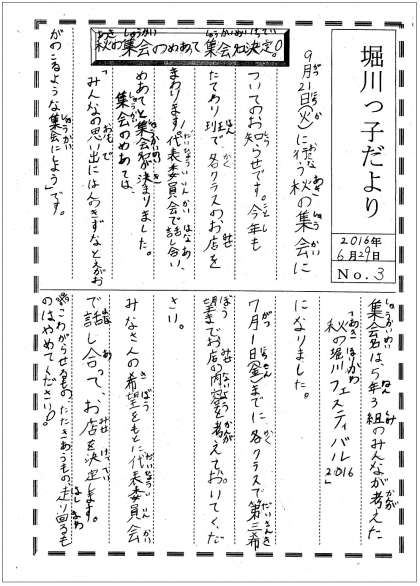 堀川っ子だより
2016年
6月29日
No.3
秋の集会のめあてと集会名決定!!
9月21日(火)に行う秋の集会に
ついてのお知らせです。今年も
たてわり班で各クラスのお店を
まわります!代表委員会で話し合い、
めあてと集会名が決まりました。
集会のめあては、
「みんなの思い出にはんのきずなとえがお
がのこるような集会にしよう」です。
集会名は、5年3組のみんなが考えた
「秋の堀川フェスティバル2016」
になりました。
7月1日(金)までに各クラスで第三希
望までお店の内容を考えておいてくだ
さい。
みなさんの希望をもとに代表委員会
で話し合って、お店を決定します。
こわがらせるもの、たたきあうもの、走り回るも
のはやめてください!!